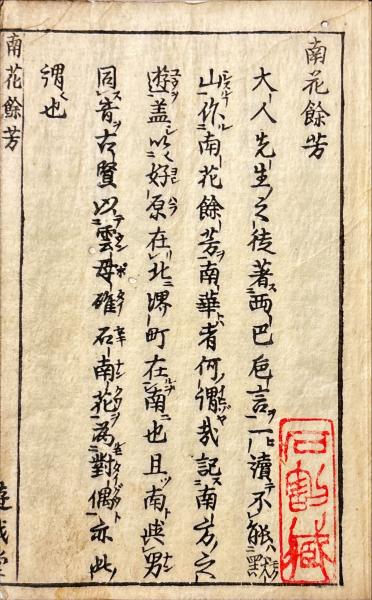 南花餘芳
大人先生之徒著西巴巵言一讀不能默
山作南花餘芳南華者何謂哉記南方之
遊盖以好原在北堺町在南也且南與男
同音古賢以雲母碓石南花為對偶亦此
謂也
南花餘芳
遊戯堂
石割臧